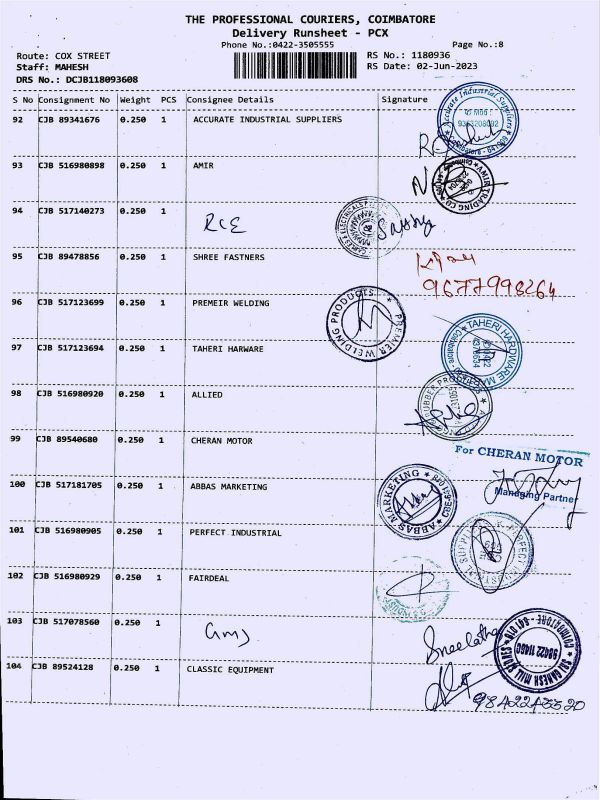 THE PROFESSIONAL COURIERS, COIMBATORE
Delivery Runsheet - PCX
Phone No.:0422-3505555 Page No.:8
Route: COX STREET RS No.: 1180936
Staff: MAHESH RS Date: 02-Jun-2023
DRS No.: DCJB118093608
S No Consignment No Weight PCS Consignee Details Signature
92 CJB 89341676 0.250 1 ACCURATE INDUSTRIAL SUPPLIERS
Accurate Industrial Suppliers
93 CJB 516980898 0.250 1 AMIR
AMIR TRADING CO
94 CJB 517140273 0.250 1 RCE
95 CJB 89478856 0.250 1 SHREE FASTNERS
9677998264
96 CJB 517123699 0.250 1 PREMEIR WELDING
PREMIER WELDING PRODUCTS
97 CJB 517123694 0.250 1 TAHERI HARWARE
TAHERI HARDWARE
98 CJB 516980920 0.250 1 ALLIED
RUBBER PRODUCTS
99 CJB 89540680 0.250 1 CHERAN MOTOR
For CHERAN MOTOR
Managing Partner
100 CJB 517181705 0.250 1 ABBAS MARKETING
ABBAS MARKETING
101 CJB 516980905 0.250 1 PERFECT INDUSTRIAL
102 CJB 516980929 0.250 1 FAIRDEAL
103 CJB 517078560 0.250 1 GMS
Sneelatha
SRI GANESH MILL STORES
104 CJB 89524128 0.250 1 CLASSIC EQUIPMENT